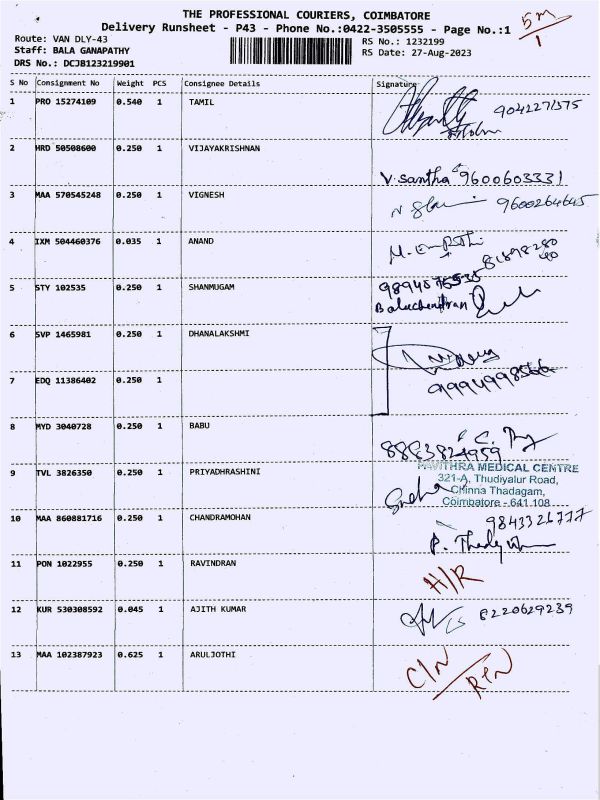 THE PROFESSIONAL COURIERS, COIMBATORE
Delivery Runsheet - P43 - Phone No.:0422-3505555 - Page No.:1
5m
1
Route: VAN DLY-43
RS No.: 1232199
Staff: BALA GANAPATHY
RS Date: 27-Aug-2023
DRS No.: DCJB123219901
S No Consignment No Weight PCS Consignee Details Signature
1 PRO 15274109 0.540 1 TAMIL
9042271575
2 HRD 50508600 0.250 1 VIJAYAKRISHNAN
V. santha 9600603331
3 MAA 570545248 0.250 1 VIGNESH
9600264645
4 IXM 504460376 0.035 1 ANAND
5 STY 102535 0.250 1 SHANMUGAM
6 SVP 1465981 0.250 1 DHANALAKSHMI
7 EDQ 11386402 0.250 1
8 MYD 3040728 0.250 1 BABU
8883824959
9 TVL 3826350 0.250 1 PRIYADHRASHINI
PAVITHRA MEDICAL CENTRE
321-A, Thudiyalur Road,
Chinna Thadagam,
Coimbatore - 641 108
Sneha
10 MAA 860881716 0.250 1 CHANDRAMOHAN
9843326777
11 PON 1022955 0.250 1 RAVINDRAN
H/R
12 KUR 530308592 0.045 1 AJITH KUMAR
8220629239
13 MAA 102387923 0.625 1 ARULJOTHI
C/N
RTN